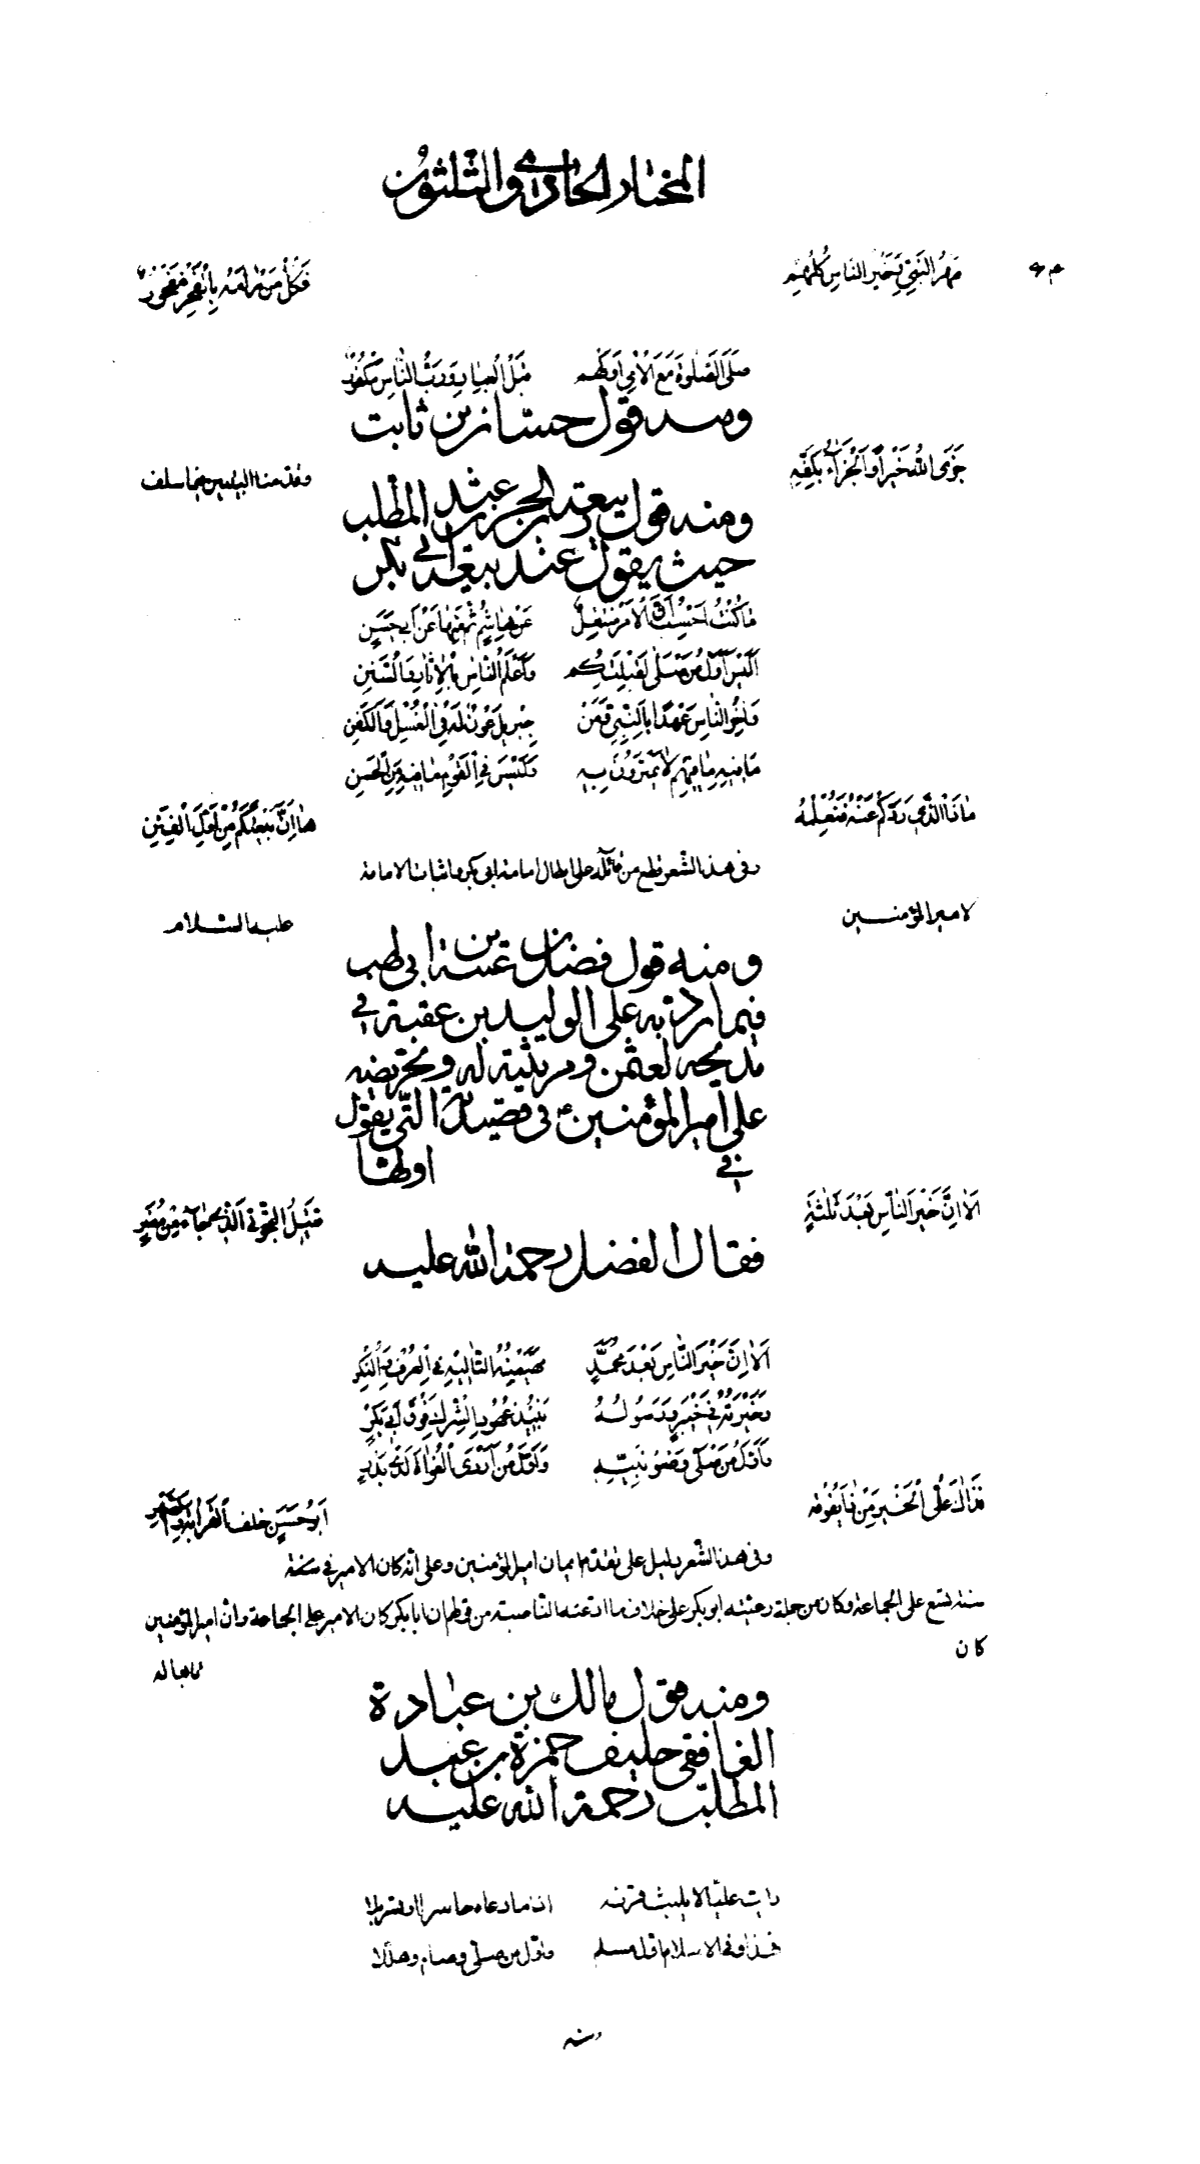 المختار الحادي والثلثون
صهر النبي وخير الناس كلهم فكل من رامه بالفخر مفخور
صلى الصلوة مع الأمي أولهم قبل العباد ورب الناس مكفور
ومنه قول حسان بن ثابت
جزى الله خيرا والجزاء بكفه وقد منا البيتين فيما سلف
ومنه قول ربيعة بن الحرث بن عبد المطلب
حيث يقول عند بيعة أبي بكر
ما كنت احسب ان الامر منتقل عن هاشم ثم منها عن أبي حسن
أليس أول من صلى لقبلتكم وأعلم الناس بالآثار والسنن
وآخر الناس عهدا بالنبي ومن جبريل عون له في الغسل والكفن
ما فيه ما فيهم لا يمترون به وليس في القوم ما فيه من الحسن
ماذا الذي ردكم عنه فنعلمه ها ان بيعتكم من أول الفتن
وفي هذا الشعر قطع من قائله على ابطال امامة ابى بكر واثبات الامامة
لامير المؤمنين عليه السلام
ومنه قول فضل بن عتبة بن ابي لهب
فيما رد به على الوليد بن عقبة في
مديحه لعثمن ومرثيته له وتحريضه
على أمير المؤمنين في قصيدته التي يقول
في اولها
الا ان خير الناس بعد ثلثة قتيل التجوبي الذي جاء من مصر
فقال الفضل رحمة الله عليه
الا ان خير الناس بعد محمد مهيمنه التاليه في العرف والنكر
وخيرته في خيبر ورسوله بنبذ عهود الشرك فوق أبي بكر
وأول من صلى وصنو نبيه وأول من أردى الغواة لدى بدر
فذاك علي الخير من ذا يفوقه أبو حسن حلف القرابة والصهر
وفي هذا الشعر دليل على تقدم ايمان امير المؤمنين وعلى انه كان الامير في سنة
تسع على الجماعة وكان من جملة رعيته ابو بكر على خلاف ما ادعته الناصبة من قولهم ان ابا بكر كان الامير على الجماعة وان امير المؤمنين
كان تابعا له
ومنه قول مالك بن عبادة
الغافقي حليف حمزة بن عبد
المطلب رحمة الله عليه
رايت عليا لا يلبث قرنه اذا ما دعاه حاسرا او مسربلا
فهذا وفي الاسلام اول مسلم واول من صلى وصام وهللا
ومنه